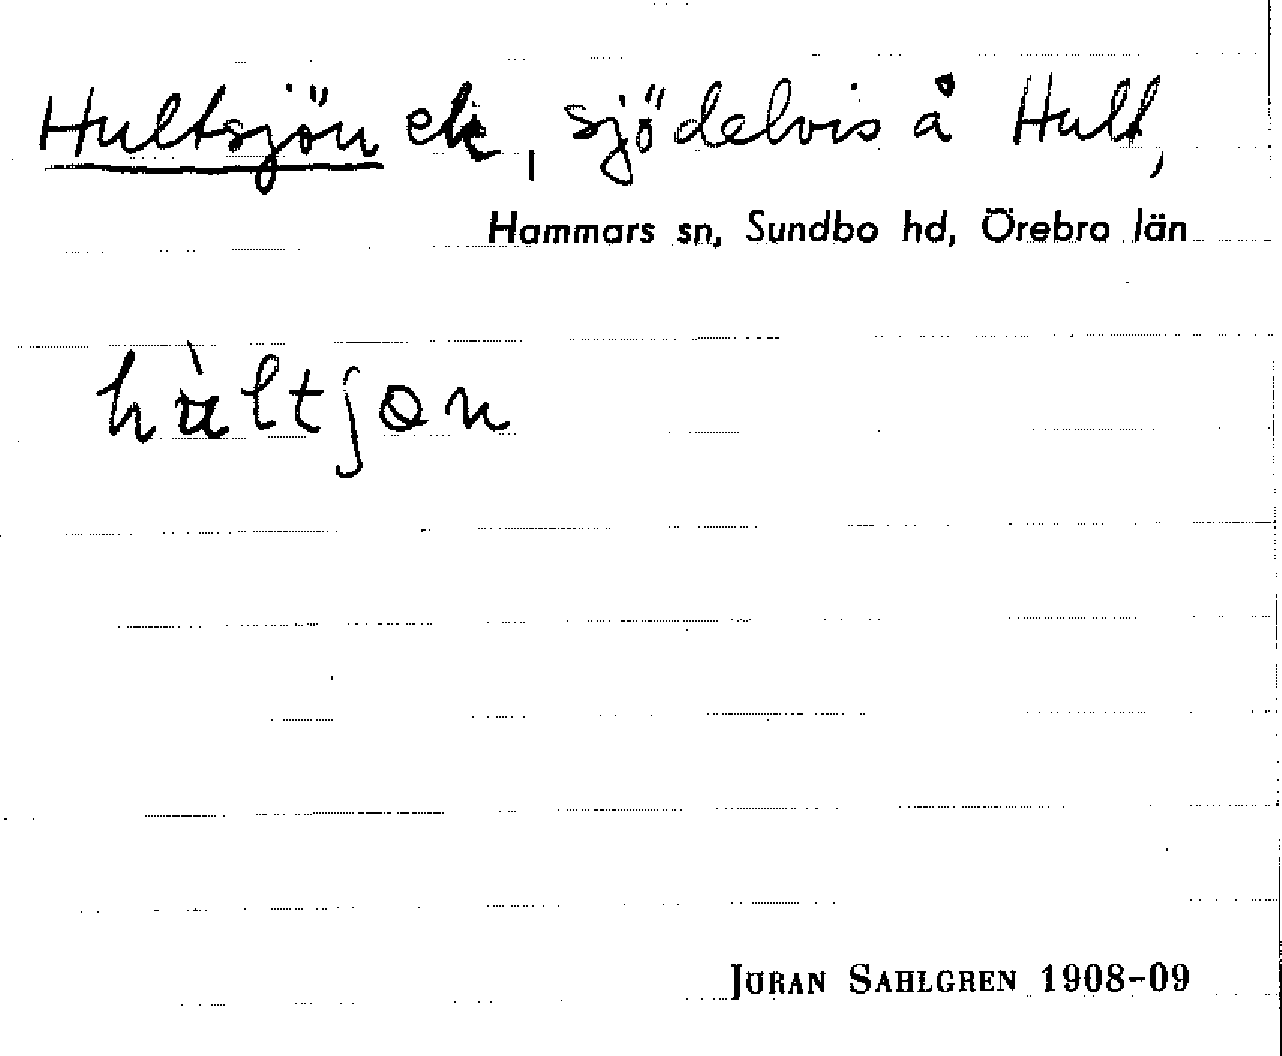 Hultsjön ek, sjö delvis å Hult,
Hammars sn, Sundbo hd, Örebro län
hùltʃɷn
JÖRAN SAHLGREN 1908-09